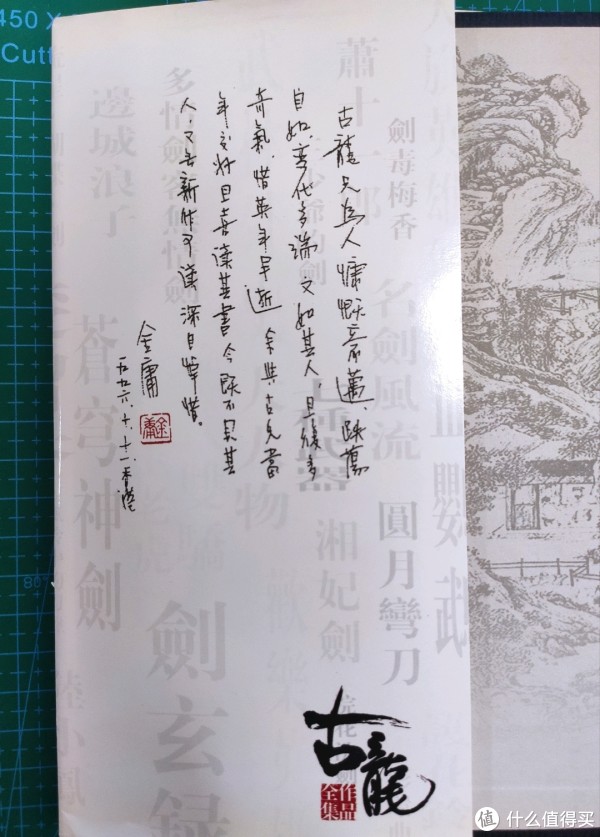 450 X
Cutt
古龍兄為人慷慨豪邁、跌蕩
自如、變化多端、文如其人且復多
奇氣、惜英年早逝余與古兄當
年交好且喜讀其書今既不見其
人、又無新作可讀深自悼惜。
金庸
一九九六、十、十一、香港
金庸
血鸚鵡
劍毒梅香
名劍風流
圓月彎刀
蕭十一郎
七種武器
湘妃劍
多情劍客無情劍
劍玄錄
邊城浪子
蒼穹神劍
陸小鳳
古龍
作品全集
值 什么值得买